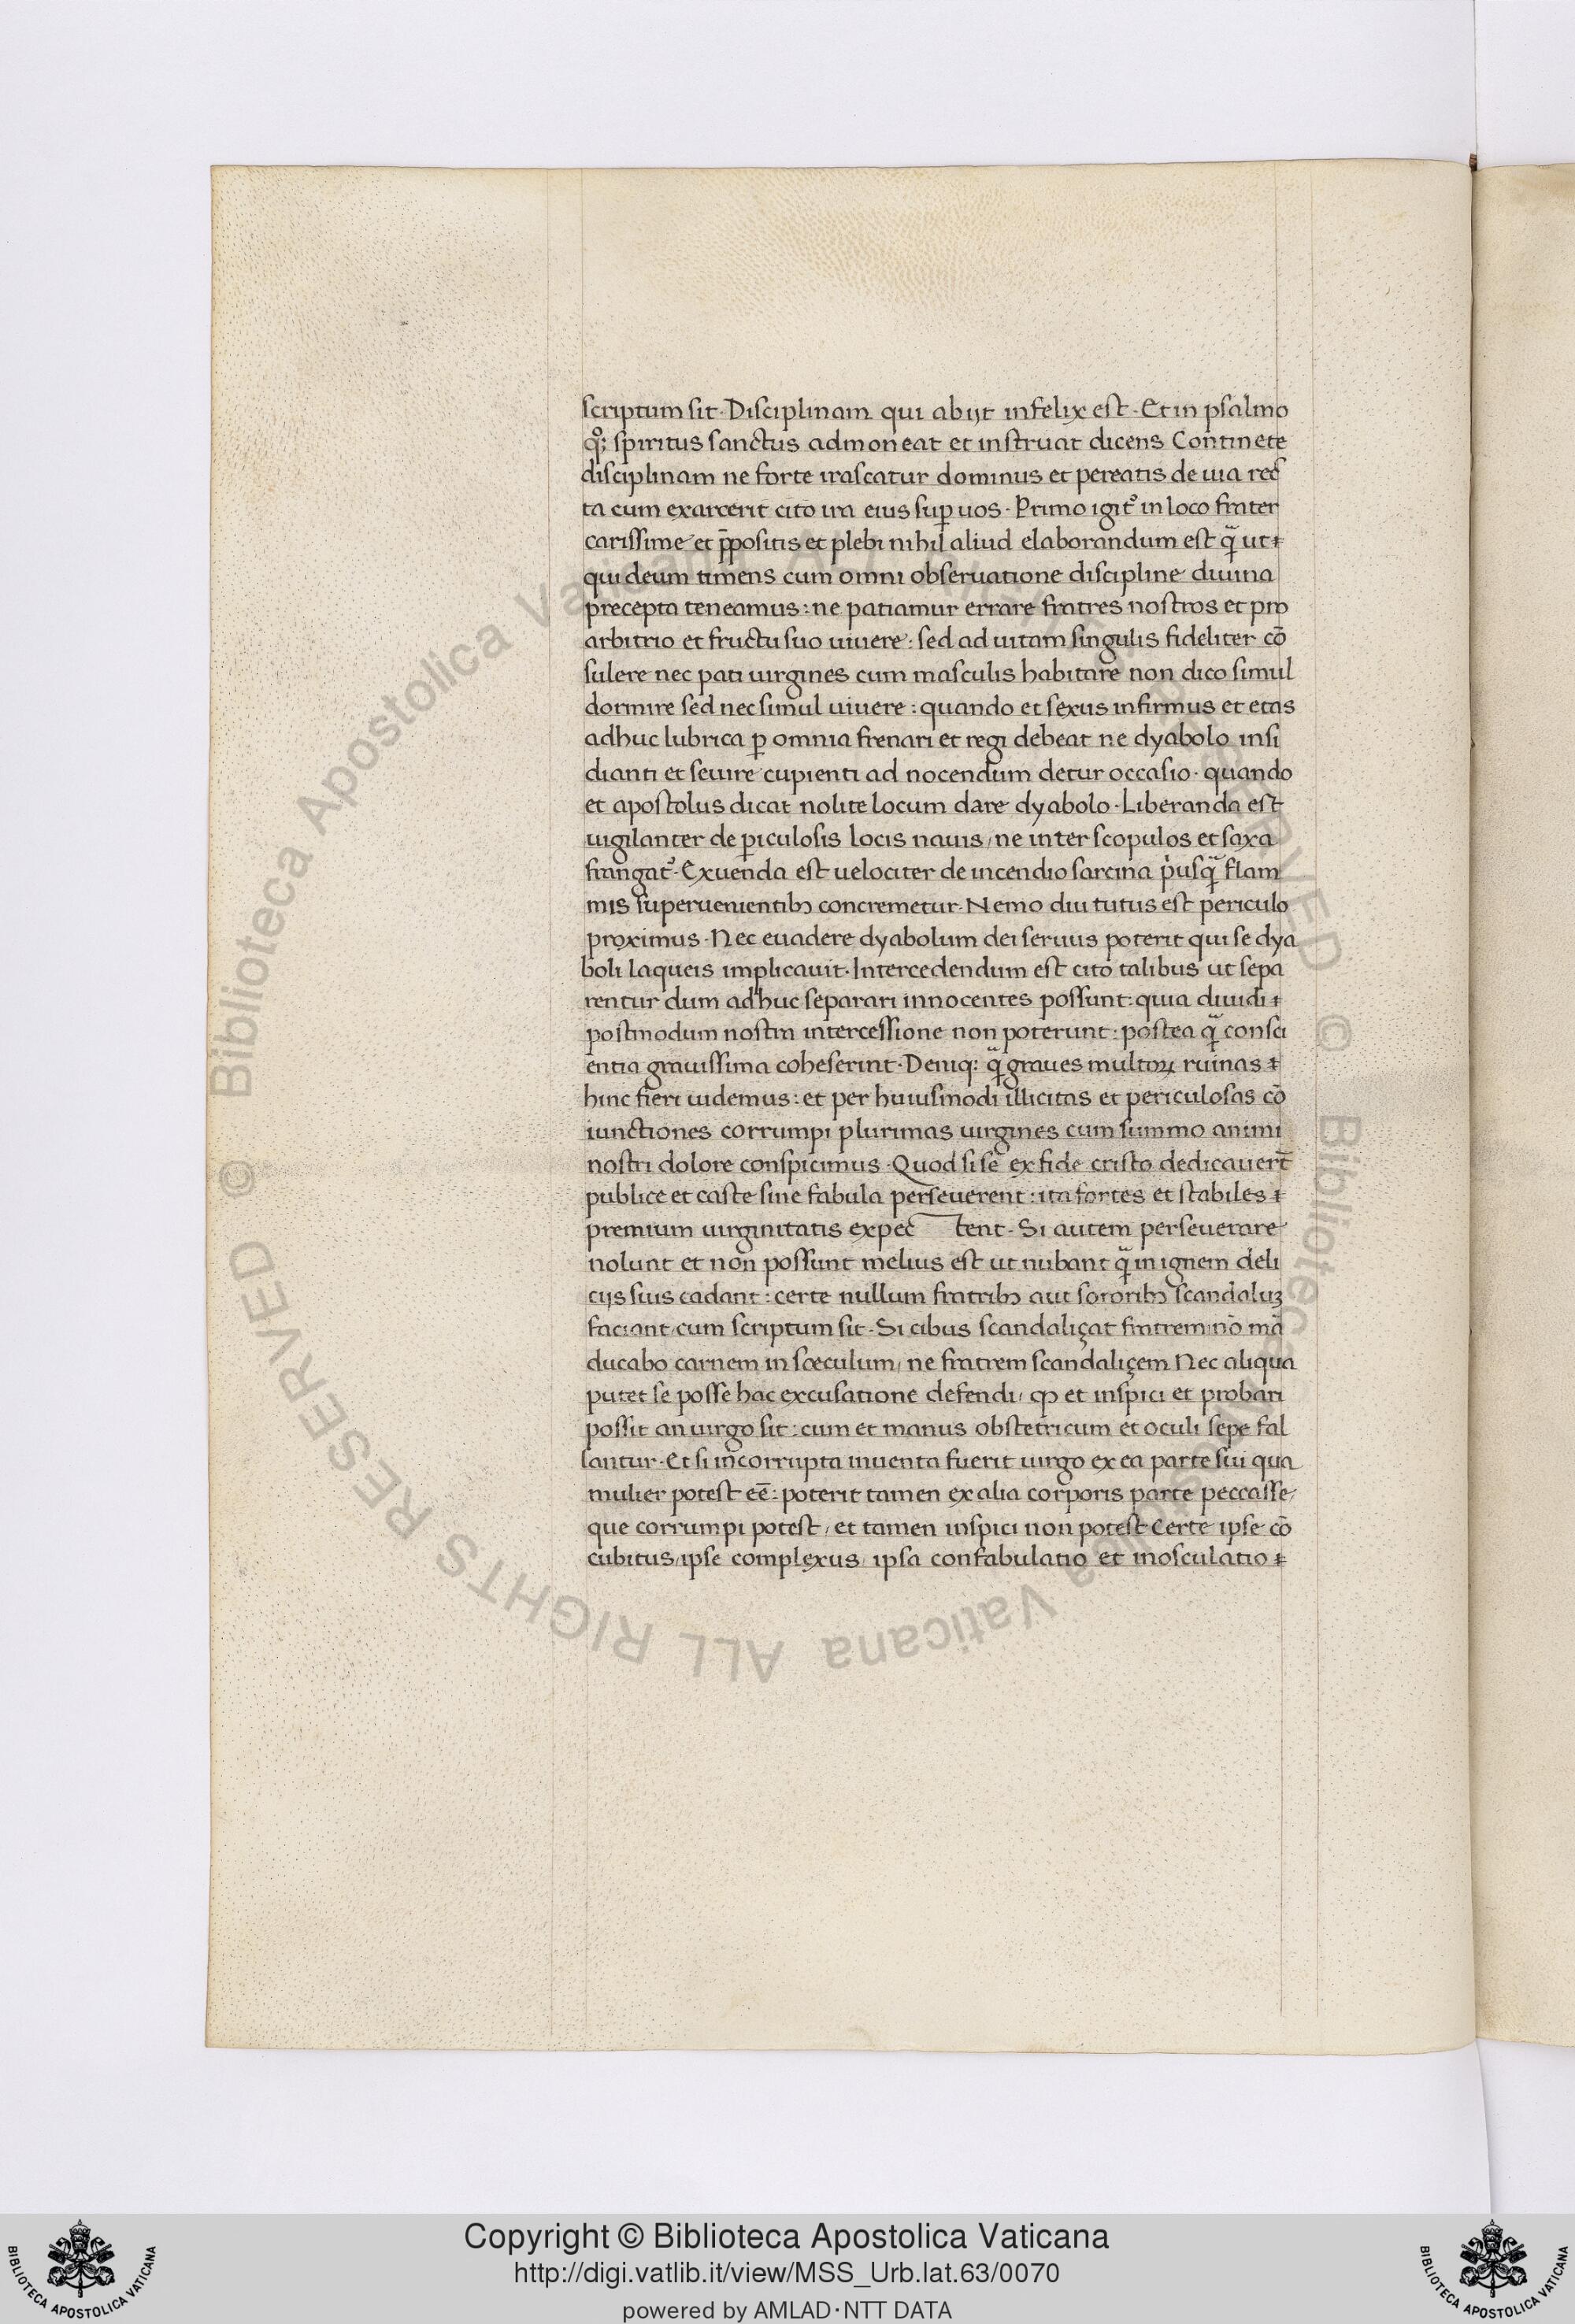 scriptum sit · Disciplinam qui abijt infelix est · Et in psalmo
qͦꝫ spiritus sanctus admoneat et instruat dicens Continete
disciplinam ne forte irascatur dominus et pereatis de uia rec
ta cum exarcerit cito ira eius suꝑ uos · Primo igit᷒ in loco frater
carissime et p̄positis et plebi nihil aliud elaborandum est qᷓ ut
qui deum timens cum omni obseruatione discipline diuina
precepta teneamus : ne patiamur errare fratres nostros et pro
arbitrio et fructu suo uiuere : sed ad uitam singulis fideliter cō
sulere nec pati uirgines cum masculis habitare non dico simul
dormire sed nec simul uiuere : quando et sexus infirmus et etas
adhuc lubrica ꝑ omnia frenari et regi debeat ne dyabolo insi
dianti et seuire cupienti ad nocendum detur occasio · quando
et apostolus dicat nolite locum dare dyabolo · Liberanda est
uigilanter de ꝑiculosis locis nauis / ne inter scopulos et saxa
frangat᷒ · Exuenda est uelociter de incendio sarcina pͥusqᷓ flam
mis superuenientibꝫ concremetur · Nemo diu tutus est periculo
proximus · Nec euadere dyabolum dei seruus poterit qui se dya
boli laqueis implicauit · Intercedendum est cito talibus ut sepa
rentur dum adhuc separari innocentes possunt : quia diuidi
postmodum nostra intercessione non poterunt : postea qᷓ consci
entia grauissima coheserint · Deniq: qᷓ graues multoꝝ ruinas
hinc fieri uidemus : et per huiusmodi illicitas et periculosas cō
iunctiones corrumpi plurimas uirgines cum summo animi
nostri dolore conspicimus · Quod si se ex fide cristo dedicauert̄
publice et caste sine fabula perseuerent : ita fortes et stabiles
premium uirginitatis expec tent · Si autem perseuerare
nolunt et non possunt melius est ut nubant qᷓ in ignem deli
cijs suis cadant : certe nullum fratribꝫ aut sororibꝫ scandaluꝫ
faciant / cum scriptum sit · Si cibus scandaliçat fratrem nō mā
ducabo carnem in sæculum / ne fratrem scandaliçem Nec aliqua
putet se posse hac excusatione defendi / ꝙ et inspici et probari
possit an uirgo sit : cum et manus obstetricum et oculi sepe fal
lantur · Et si incorrupta inuenta fuerit uirgo ex ea parte sui qua
mulier potest eē : poterit tamen ex alia corporis parte peccasse /
que corrumpi potest / et tamen inspici non potest Certe ipse cō
cubitus / ipse complexus / ipsa confabulatio et inosculatio
Copyright © Biblioteca Apostolica Vaticana
http://digi.vatlib.it/view/MSS_Urb.lat.63/0070
powered by AMLAD · NTT DATA
BIBLIOTECA APOSTOLICA VATICANA
BIBLIOTECA APOSTOLICA VATICANA
© Biblioteca Apostolica Vaticana ALL RIGHTS RESERVED
© Biblioteca Apostolica Vaticana ALL RIGHTS RESERVED